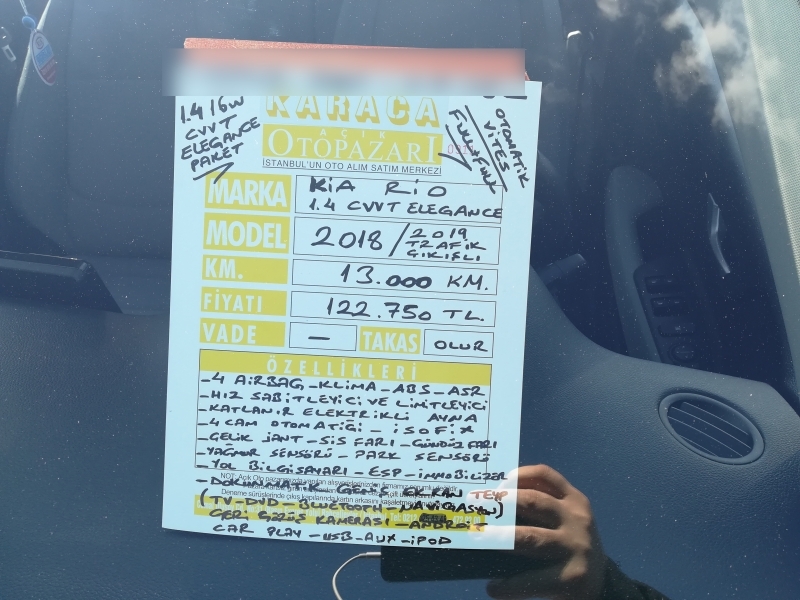 1.4 16W
CVVT
ELEGANCE
PAKET
OTOMATİK
VİTES
FULL+FULL
KARACA
AÇIK
OTOPAZARI
İSTANBUL'UN OTO ALIM SATIM MERKEZİ
MARKA
KİA RİO
1.4 CVVT ELEGANCE
MODEL
2018/2019
TRAFİK
ÇIKIŞLI
KM.
13.000 KM.
FİYATI
122.750 TL.
VADE
—
TAKAS
OLUR
ÖZELLİKLERİ
-4 AİRBAG -KLİMA -ABS -ASR
-HIZ SABİTLEYİCİ VE LİMİTLEYİCİ
-KATLANIR ELEKTRİKLİ AYNA
-4 CAM OTOMATİĞİ - İSOFİX
-ÇELİK JANT -SİS FARI -GÜNDÜZ FARI
-YAĞMUR SENSÖRÜ - PARK SENSÖRÜ
-YOL BİLGİSAYARI - ESP -İMMOBİLİZER
-DOKUNMATİK GENİŞ EKRAN TEYP
(TV-DVD - BLUETOOTH -NAVİGASYON)
GERİ GÖRÜŞ KAMERASI -ANDROİT
CAR PLAY -USB -AUX -İPOD